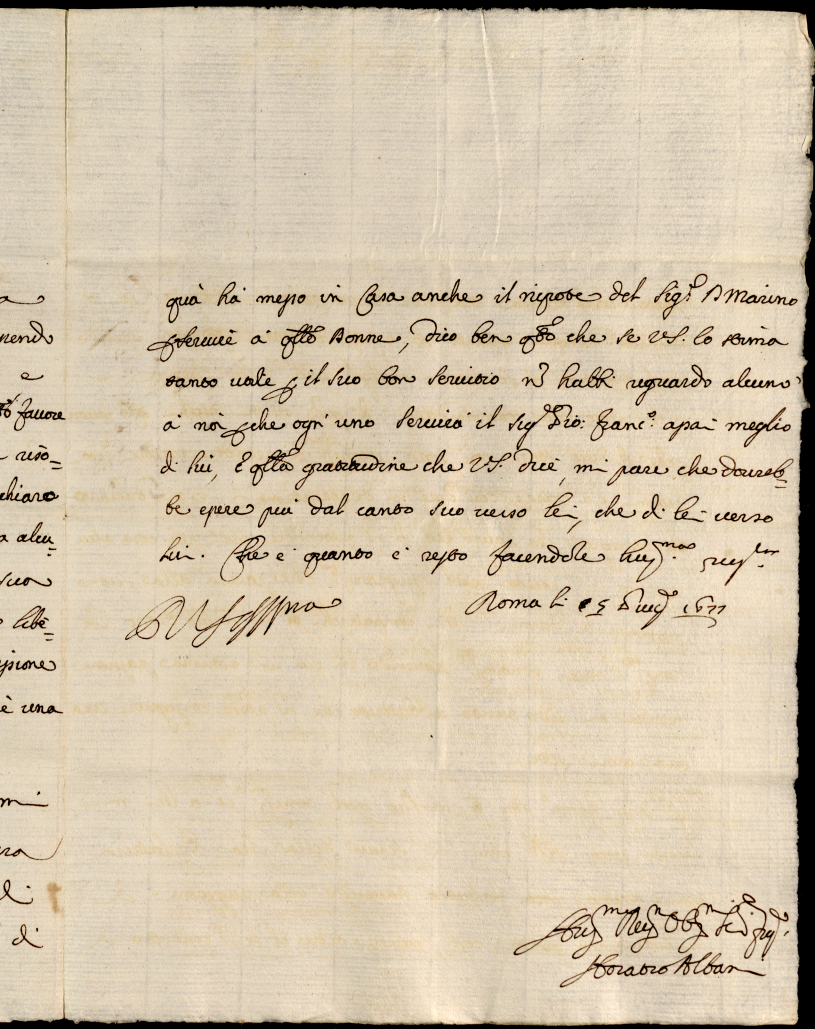 a
nendo
e
favore
riso=
chiaro
alcu=
sua
libe=
sione
è una
mi
ra
di
di
quà hà messo in Casa anche il nipote del Sig.r D Marino
servire à q.sto Bonne, dico ben q.sto che se V.S. lo stima
tanto vale p il suo bon servitio nō habbi riguardo alcuno
à noi, che ogn' uno servirà il Sig.r Gio: Franc.o assai meglio
di lui, È q.sta gratitudine che V.S. dice, mi pare che dovreb=
be essere più dal canto suo verso lei, che di lei verso
lui. Che è quanto e resto facendole hum.ma
Roma li 15 1677
Ser.
Horatio Albani